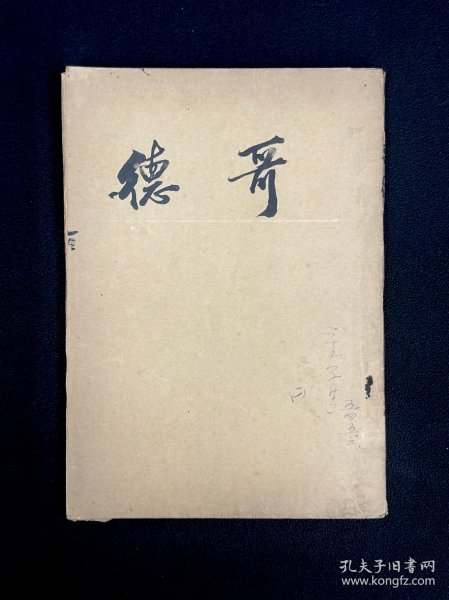 哥德
五四、五、六
孔夫子旧书网
www.kongfz.com